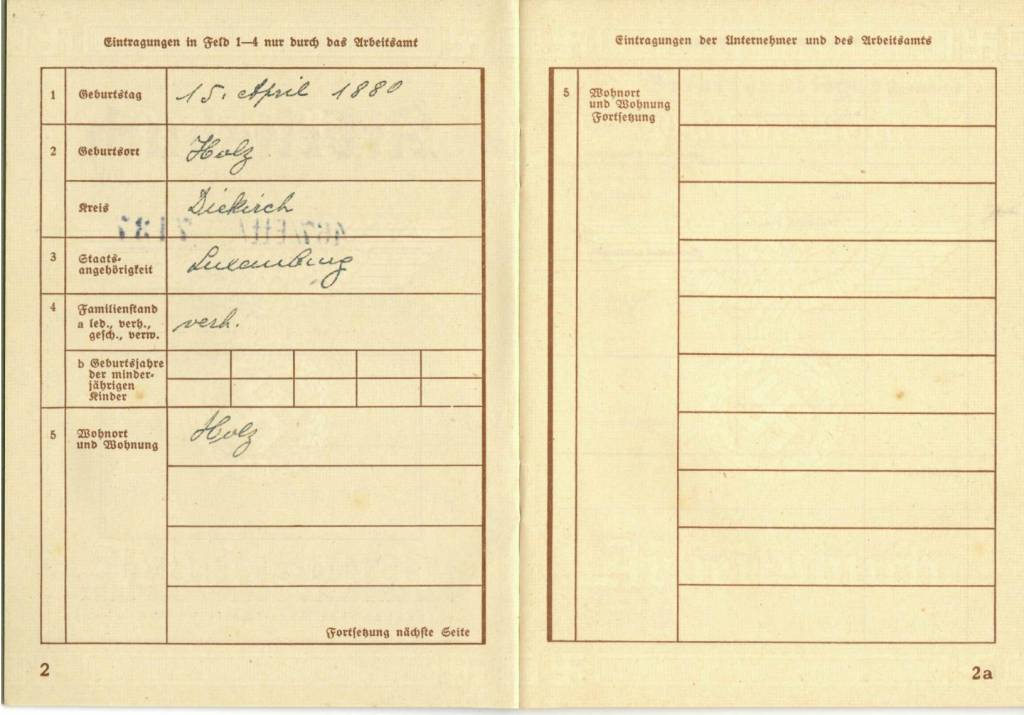 Eintragungen in Feld 1—4 nur durch das Arbeitsamt
1 Geburtstag 15. April 1880
2 Geburtsort Holz
Kreis Diekirch
3 Staats-
angehörigkeit Luxemburg
4 Familienstand
a led., verh.,
gesch., verw. verh.
b Geburtsjahre
der minder-
jährigen
Kinder
5 Wohnort
und Wohnung Holz
Fortsetzung nächste Seite
2
Eintragungen der Unternehmer und des Arbeitsamts
5 Wohnort
und Wohnung
Fortsetzung
2a